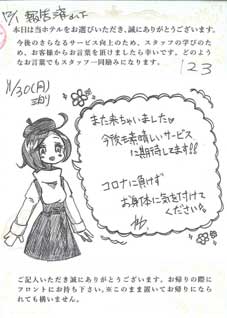 本日は当ホテルをお選びいただき、誠にありがとうございます。
今後のさらなるサービス向上のため、スタッフの学びのため、お客様からお言葉を頂けましたら幸いです。どのようなお言葉でもスタッフ一同励みになります。
123
11/30(月)
また来ちゃいました♡
今後も素晴しいサービス
に期待してます!!
コロナに負けず
お身体に気を付けて
ください。
ご記入いただき誠にありがとうございます。お帰りの際に
フロントにお持ち下さい。※このまま置いてお帰りになら
れても構いません。